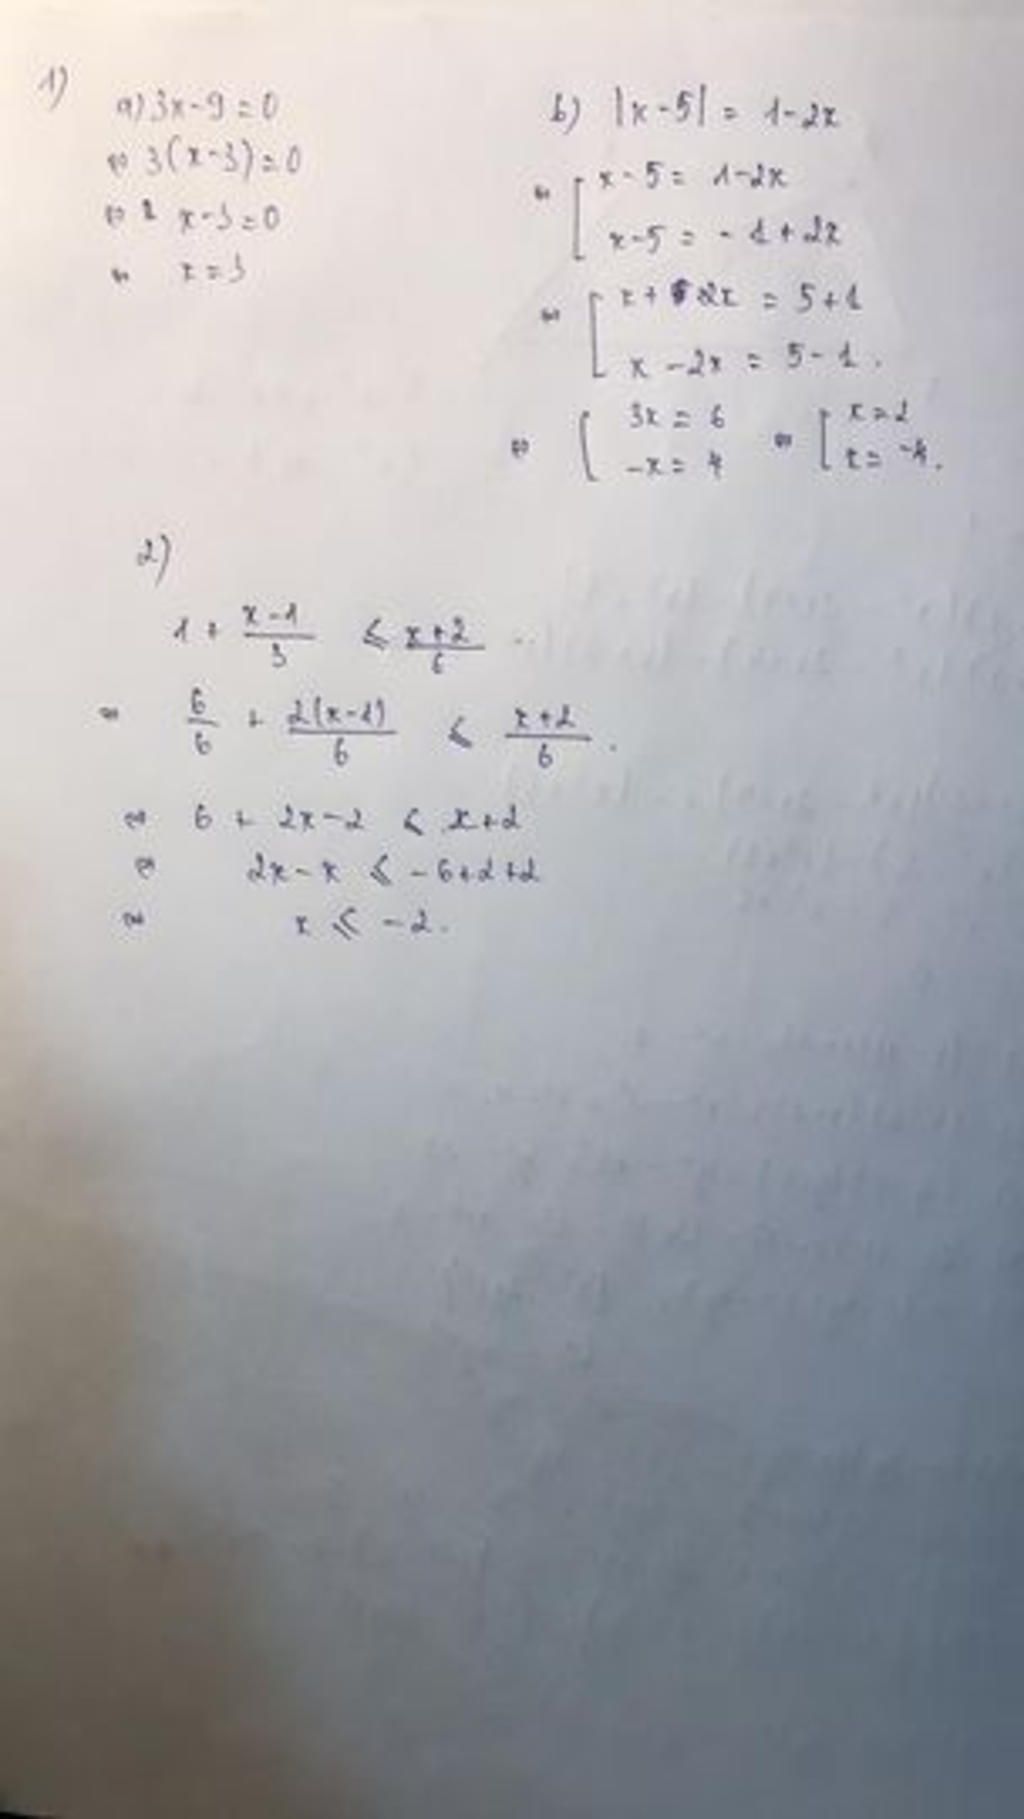 1)
a) 3x - 9 = 0
⇔ 3(x - 3) = 0
⇔ x - 3 = 0
⇔ x = 3
b) |x - 5| = 1 - 2x
⇔ [ x - 5 = 1 - 2x
x - 5 = - 1 + 2x
⇔ [ x + 2x = 5 + 1
x - 2x = 5 - 1.
⇔ [ 3x = 6 ⇔ [ x = 2
-x = 4 x = -4.
2)
1 + \frac{x - 1}{3} ≤ \frac{x + 2}{6}
⇔ \frac{6}{6} + \frac{2(x - 1)}{6} ≤ \frac{x + 2}{6}.
⇔ 6 + 2x - 2 ≤ x + 2
⇔ 2x - x ≤ - 6 + 2 + 2
⇔ x ≤ - 2.